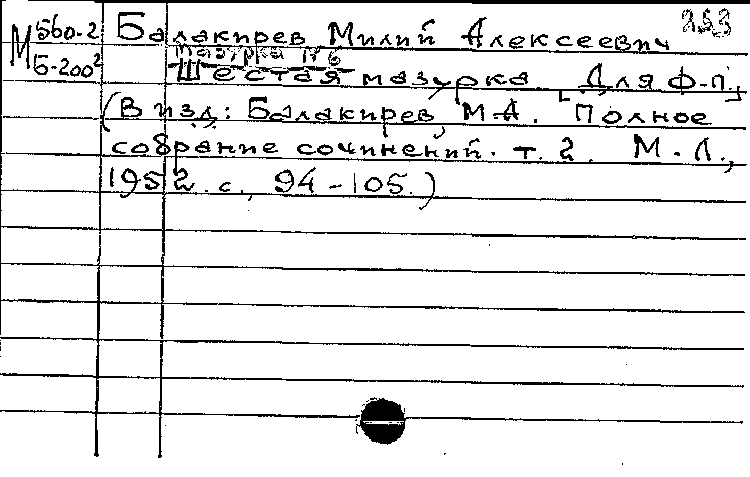 М 560-2 Балакирев Милий Алексеевич 253
Мазурка № 6
Б-200² Шестая мазурка. [Для ф-п.]
(В изд.: Балакирев, М.А. Полное
собрание сочинений. т. 2. М.-Л.,
1952. с., 94-105.)